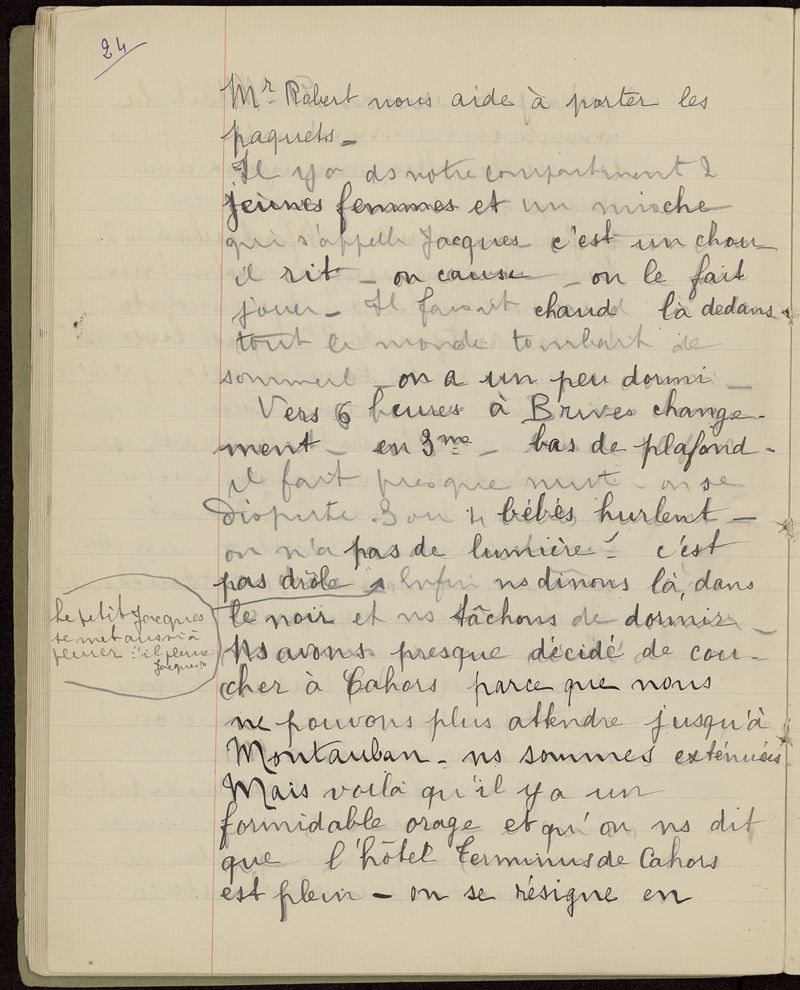 24
Mr Robert nous aide à porter les
paquets -
Il y a ds notre compartiment 2
jeunes femmes et un mioche
qui s'appelle Jacques c'est un chou
il rit - on cause - on le fait
jouer - Il faisait chaud là dedans
tout le monde tombait de
sommeil - on a un peu dormi -
Vers 6 heures à Brives change-
ment - en 3me - bas de plafond -
il fait presque nuit - on se
dispute 3 ou 4 bébés hurlent -
on n'a pas de lumière - c'est
pas drôle Enfin ns dinons là, dans
le noir et ns tâchons de dormir -
Le petit Jacques
se met aussi à
"il pleure
Jacques"
Ns avons presque décidé de cou-
cher à Cahors parce que nous
ne pouvons plus attendre jusqu'à
Montauban - ns sommes exténuées
Mais voilà qu'il y a un
formidable orage et qu'on ns dit
que l'hôtel Terminus de Cahors
est plein - on se résigne en